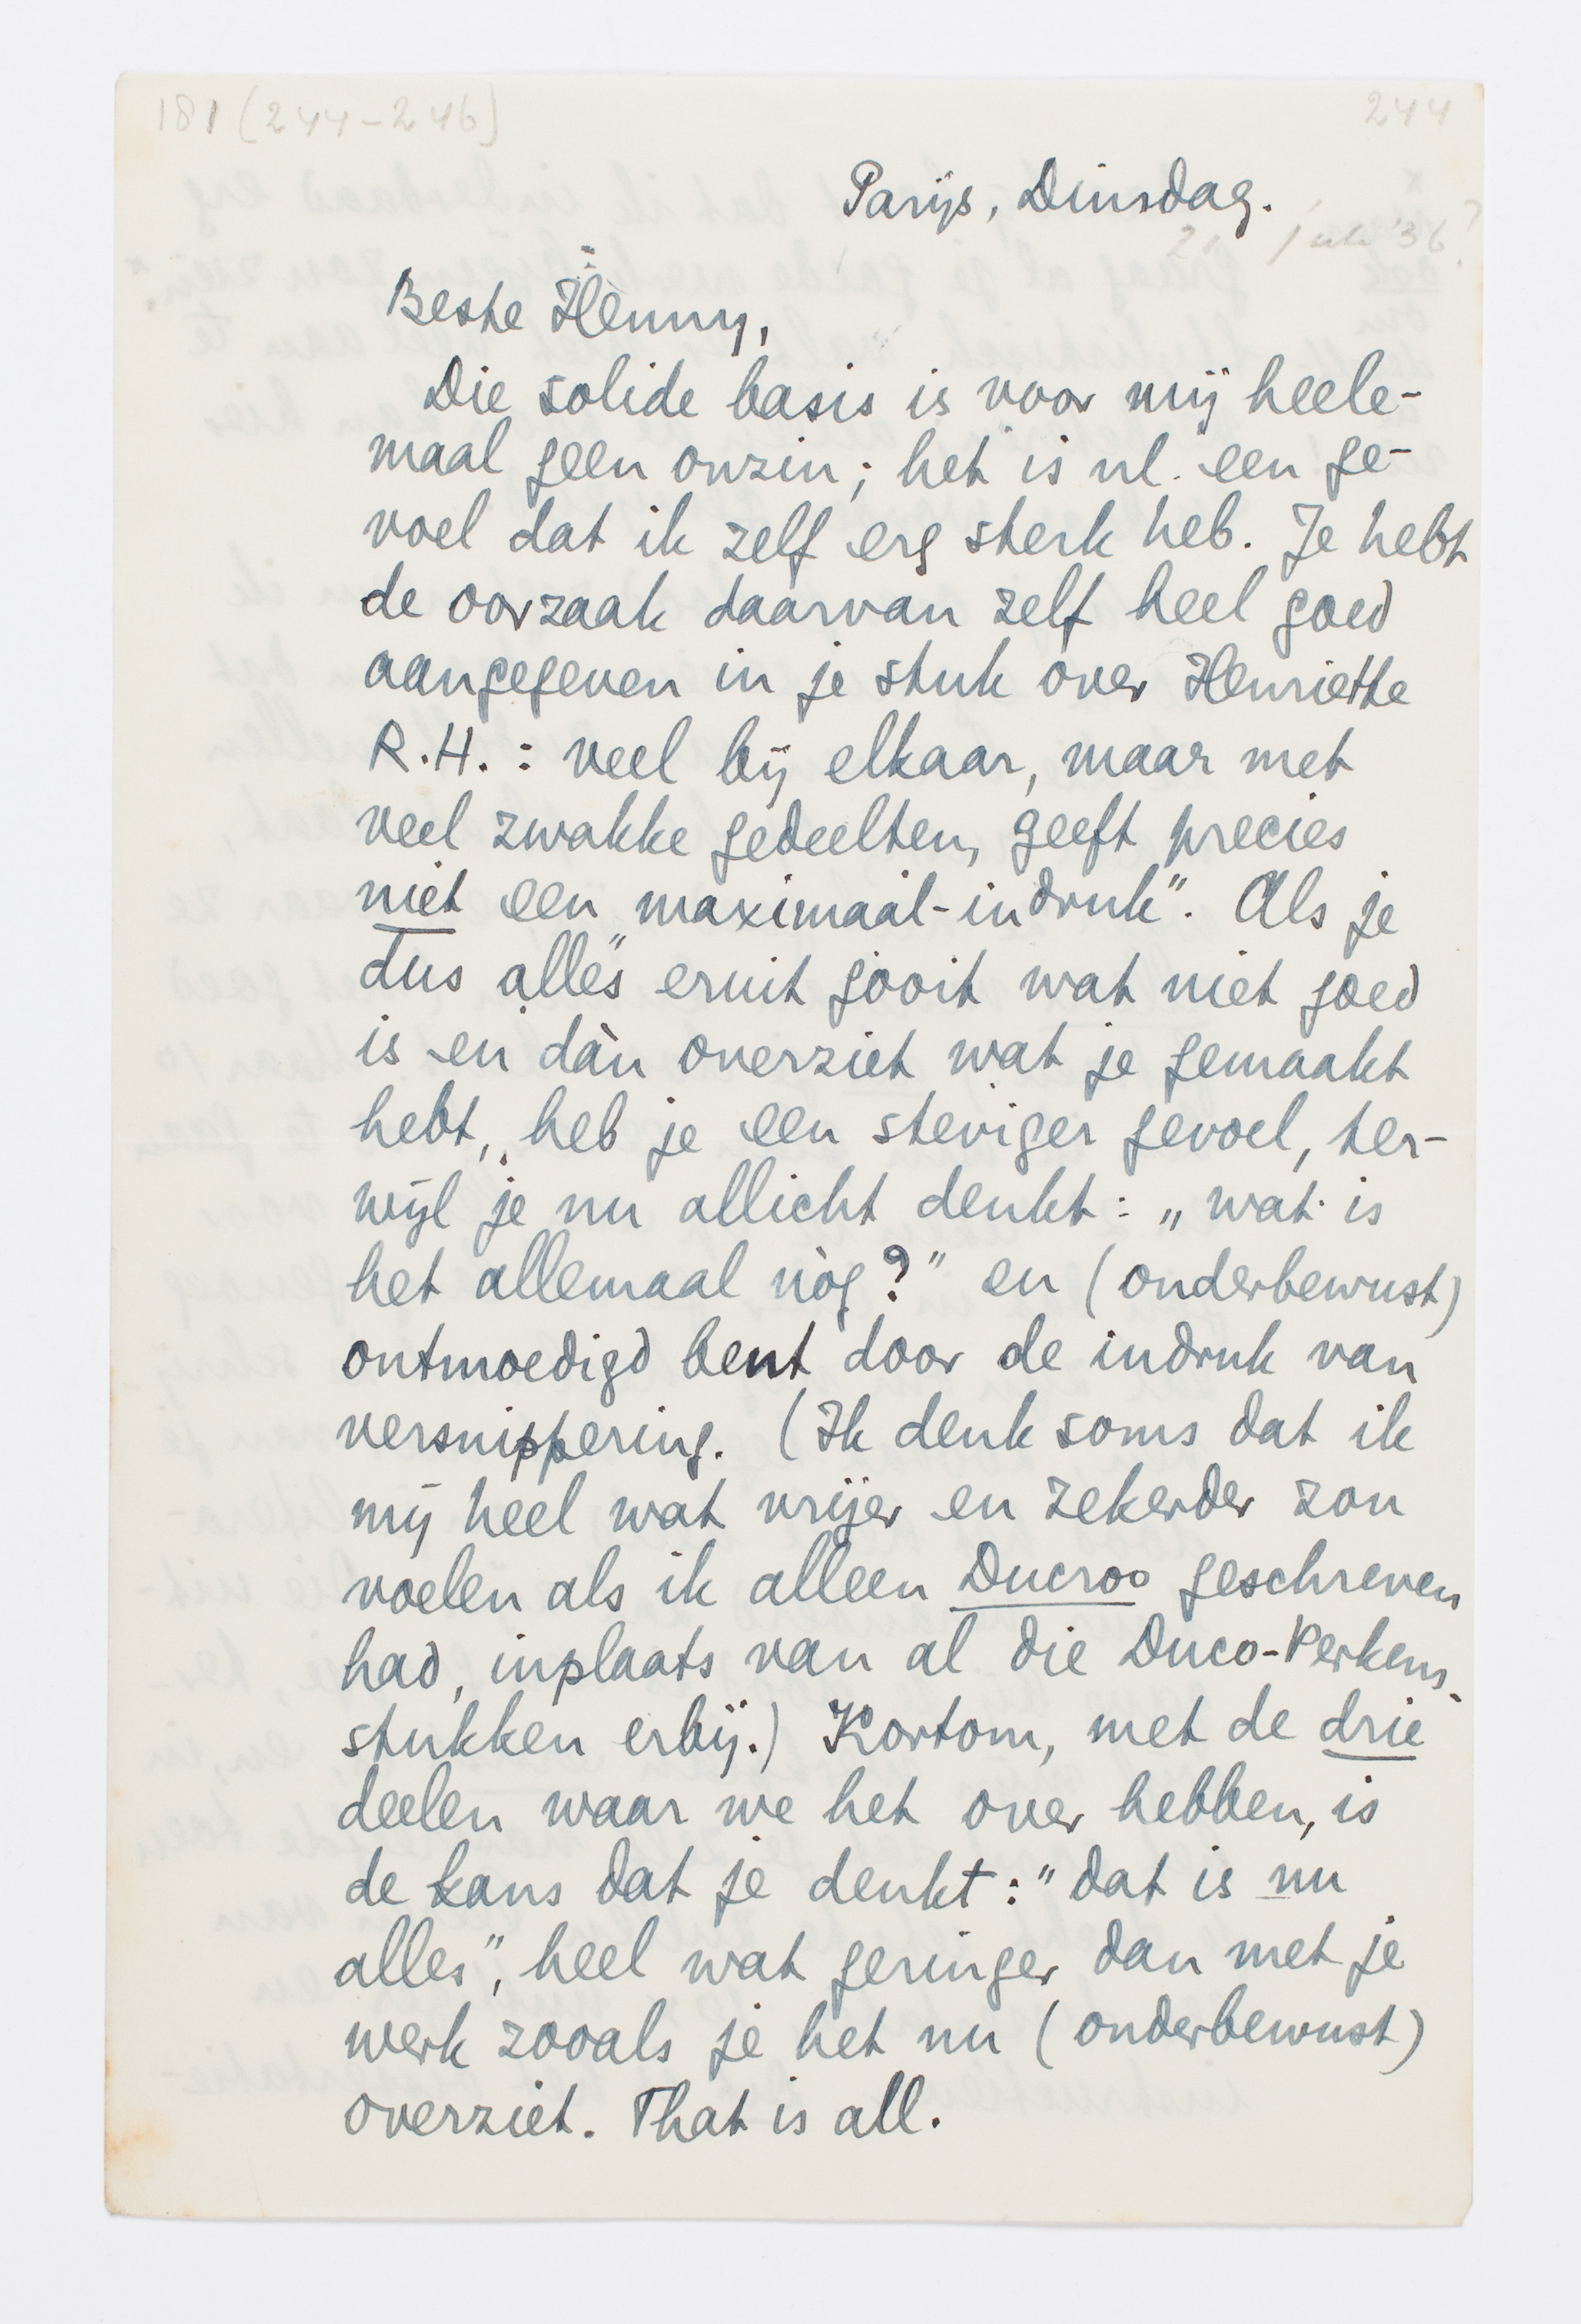 181 (244-246)
244
Parijs, Dinsdag.
21 Juli '36?
Beste Henny,
Die solide basis is voor mij heele-
maal geen onzin; het is nl. een ge-
voel dat ik zelf erg sterk heb. Je hebt
de oorzaak daarvan zelf heel goed
aangegeven in je stuk over Henriette
R.H.: veel bij elkaar, maar met
veel zwakke gedeelten, geeft precies
niet een „maximaal-indruk”. Als je
dus alles eruit gooit wat niet goed
is en dàn overziet wat je gemaakt
hebt, heb je een steviger gevoel, ter-
wijl je nu allicht denkt: „wat is
het allemaal nòg?” en (onderbewust)
ontmoedigd bent door de indruk van
versnippering. (Ik denk soms dat ik
mij heel wat vrijer en zekerder zou
voelen als ik alleen Ducroo geschreven
had, inplaats van al die Duco-Perkens-
stukken erbij.) Kortom, met de drie
deelen waar we het over hebben, is
de kans dat je denkt: "dat is nu
alles", heel wat geringer dan met je
werk zooals je het nu (onderbewust)
overziet. That is all.